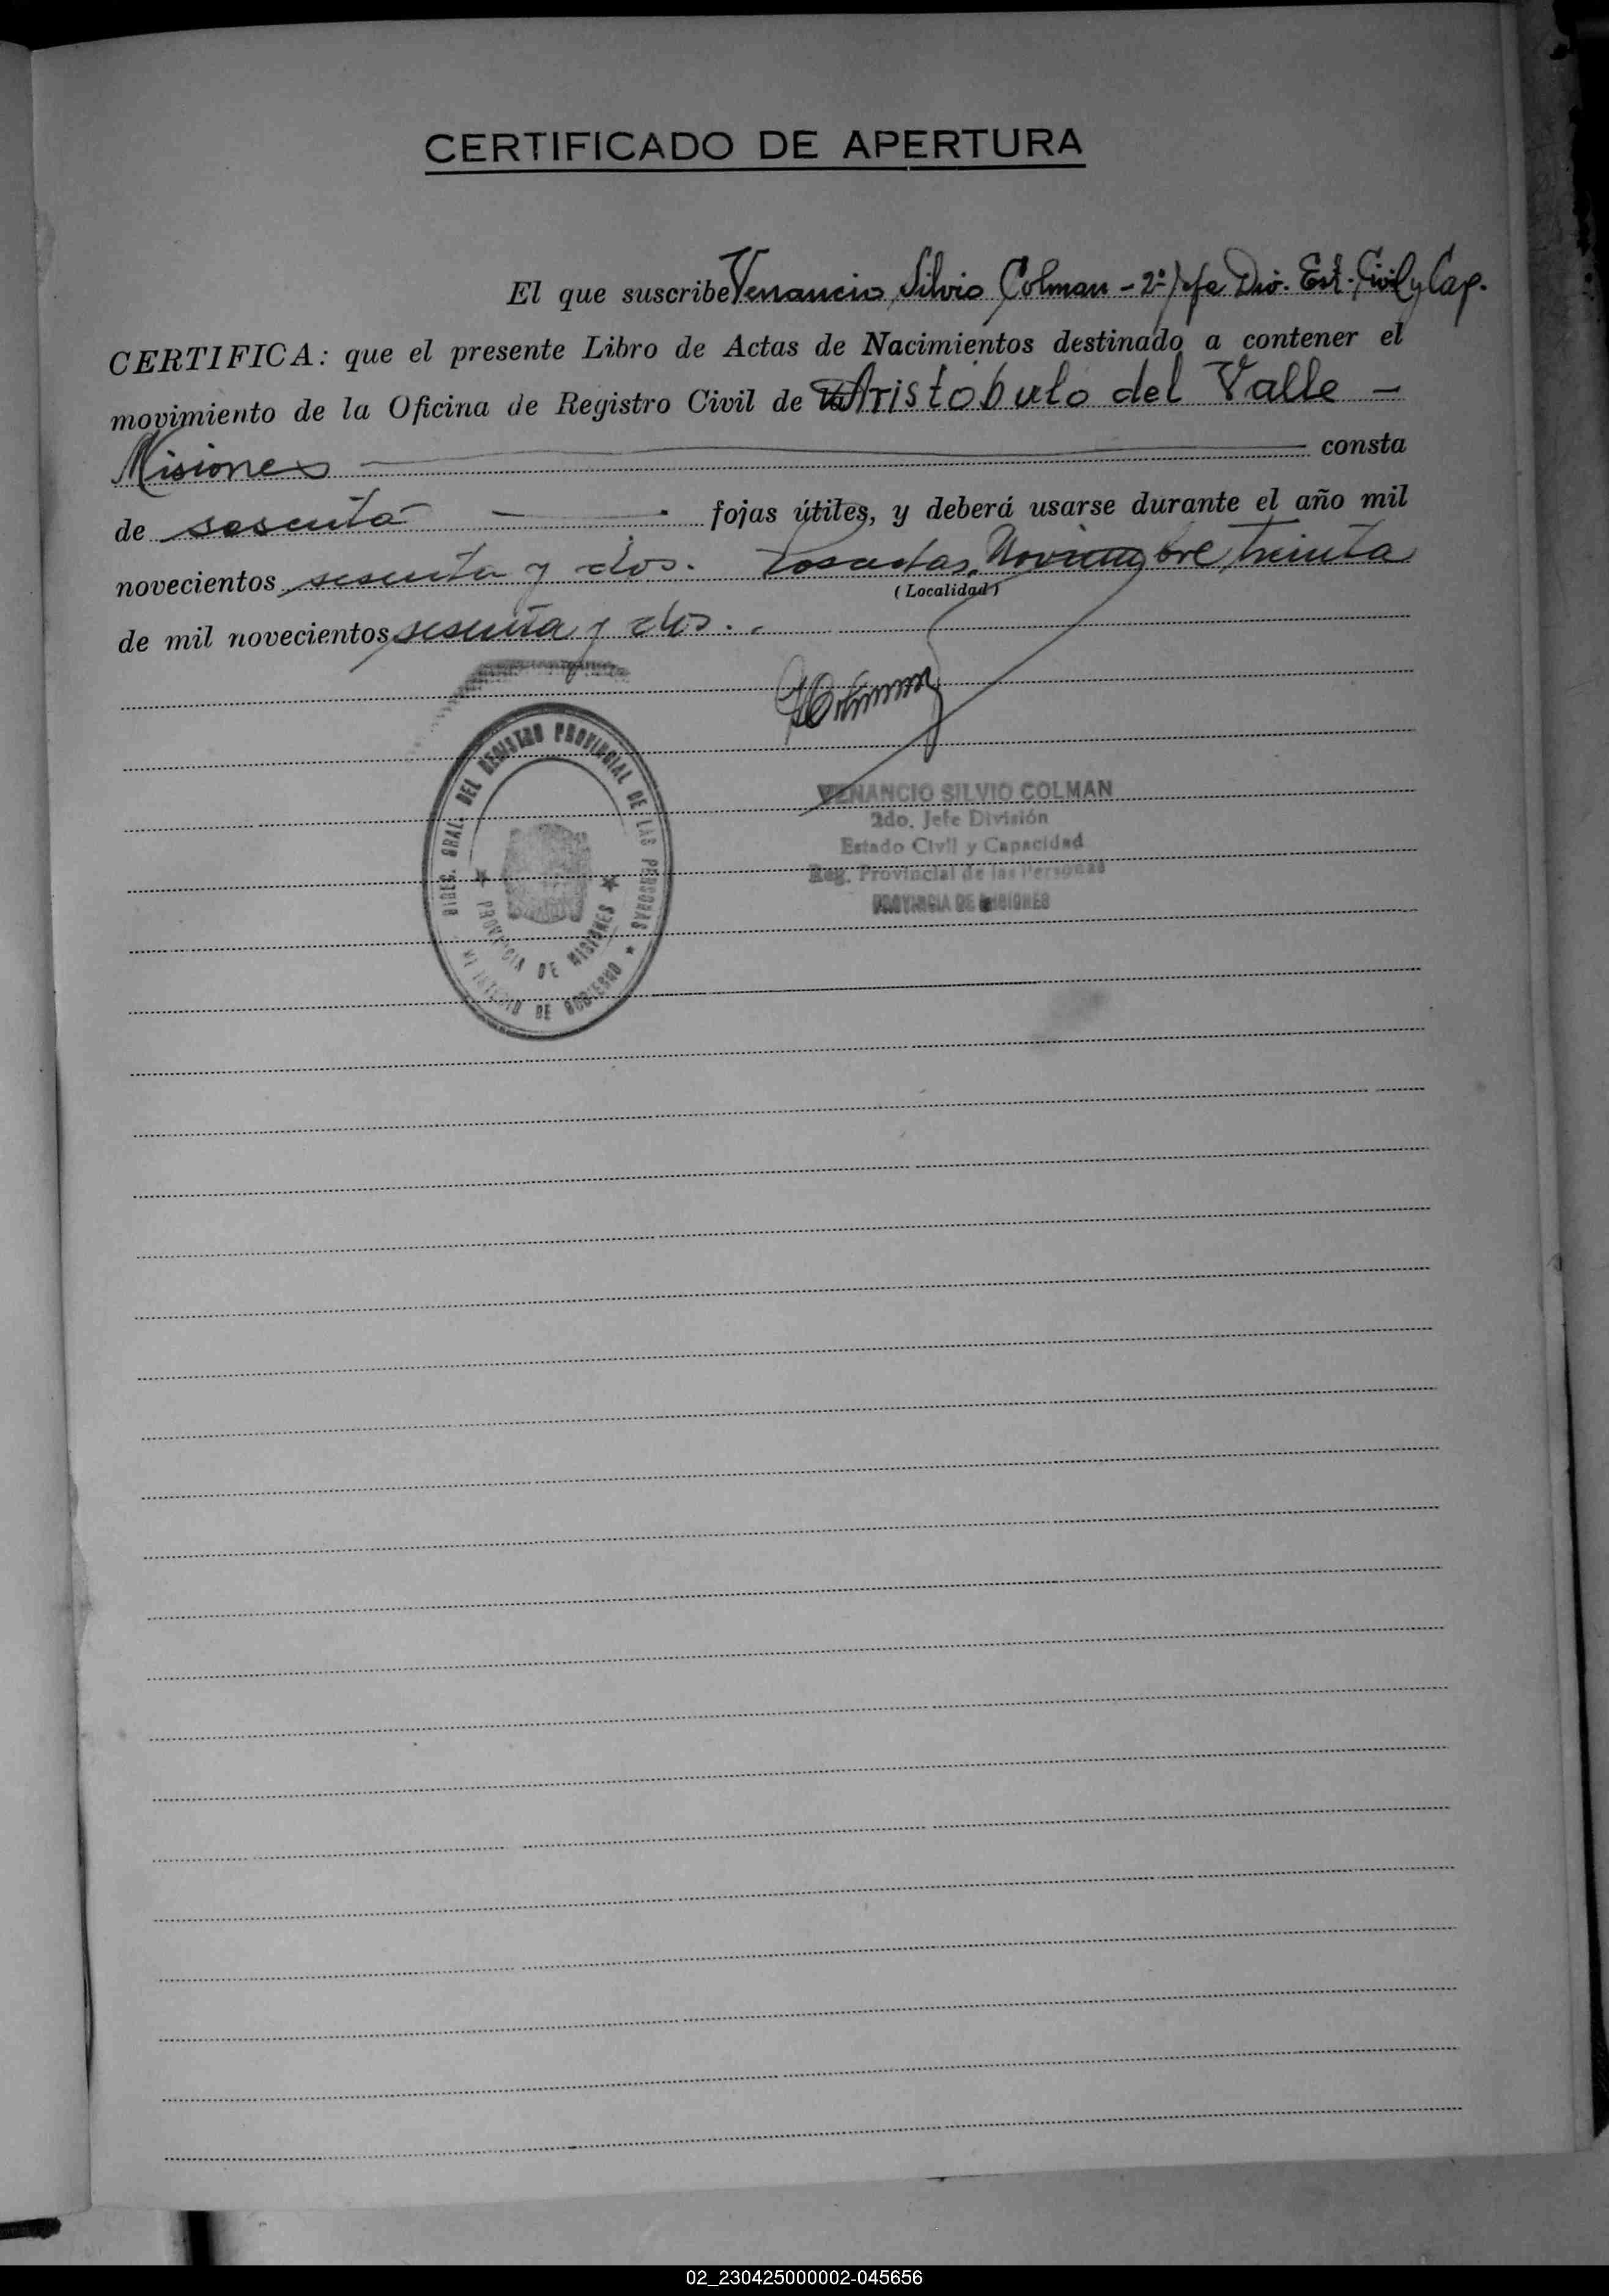 CERTIFICADO DE APERTURA
El que suscribe Venancio Silvio Colman - 2º Jefe Div. Est. Civil y Cap.
CERTIFICA: que el presente Libro de Actas de Nacimientos destinado a contener el
movimiento de la Oficina de Registro Civil de Aristóbulo del Valle -
Misiones consta
de sesenta fojas útiles, y deberá usarse durante el año mil
novecientos sesenta y dos. Posadas, Noviembre treinta
(Localidad)
de mil novecientos sesenta y dos.
DIREC. GRAL. DEL REGISTRO PROVINCIAL DE LAS PERSONAS
PROVINCIA DE MISIONES
MINISTERIO DE GOBIERNO
VENANCIO SILVIO COLMAN
2do. Jefe División
Estado Civil y Capacidad
Reg. Provincial de las Personas
PROVINCIA DE MISIONES
02_230425000002-045656